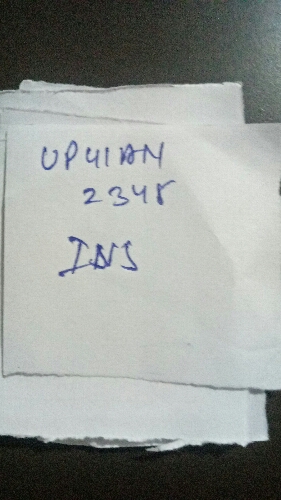 UP41AN
2345
INS